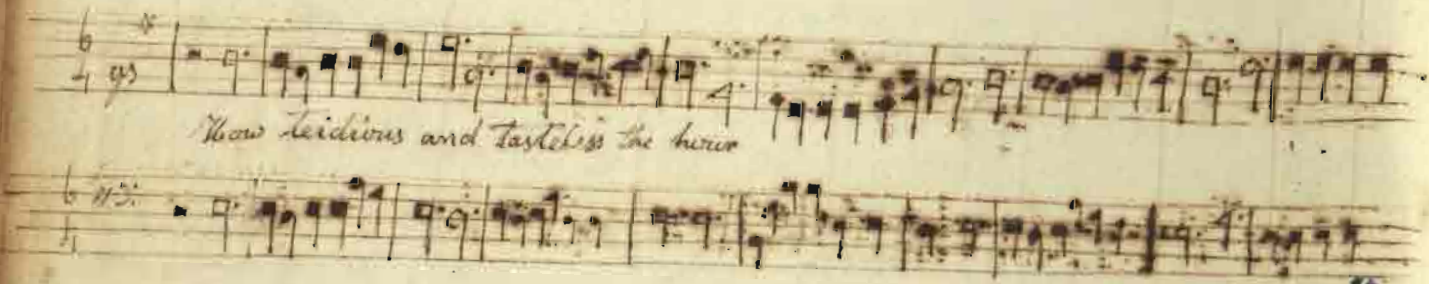 6
4
How teidious and tasteless the hour
6
4